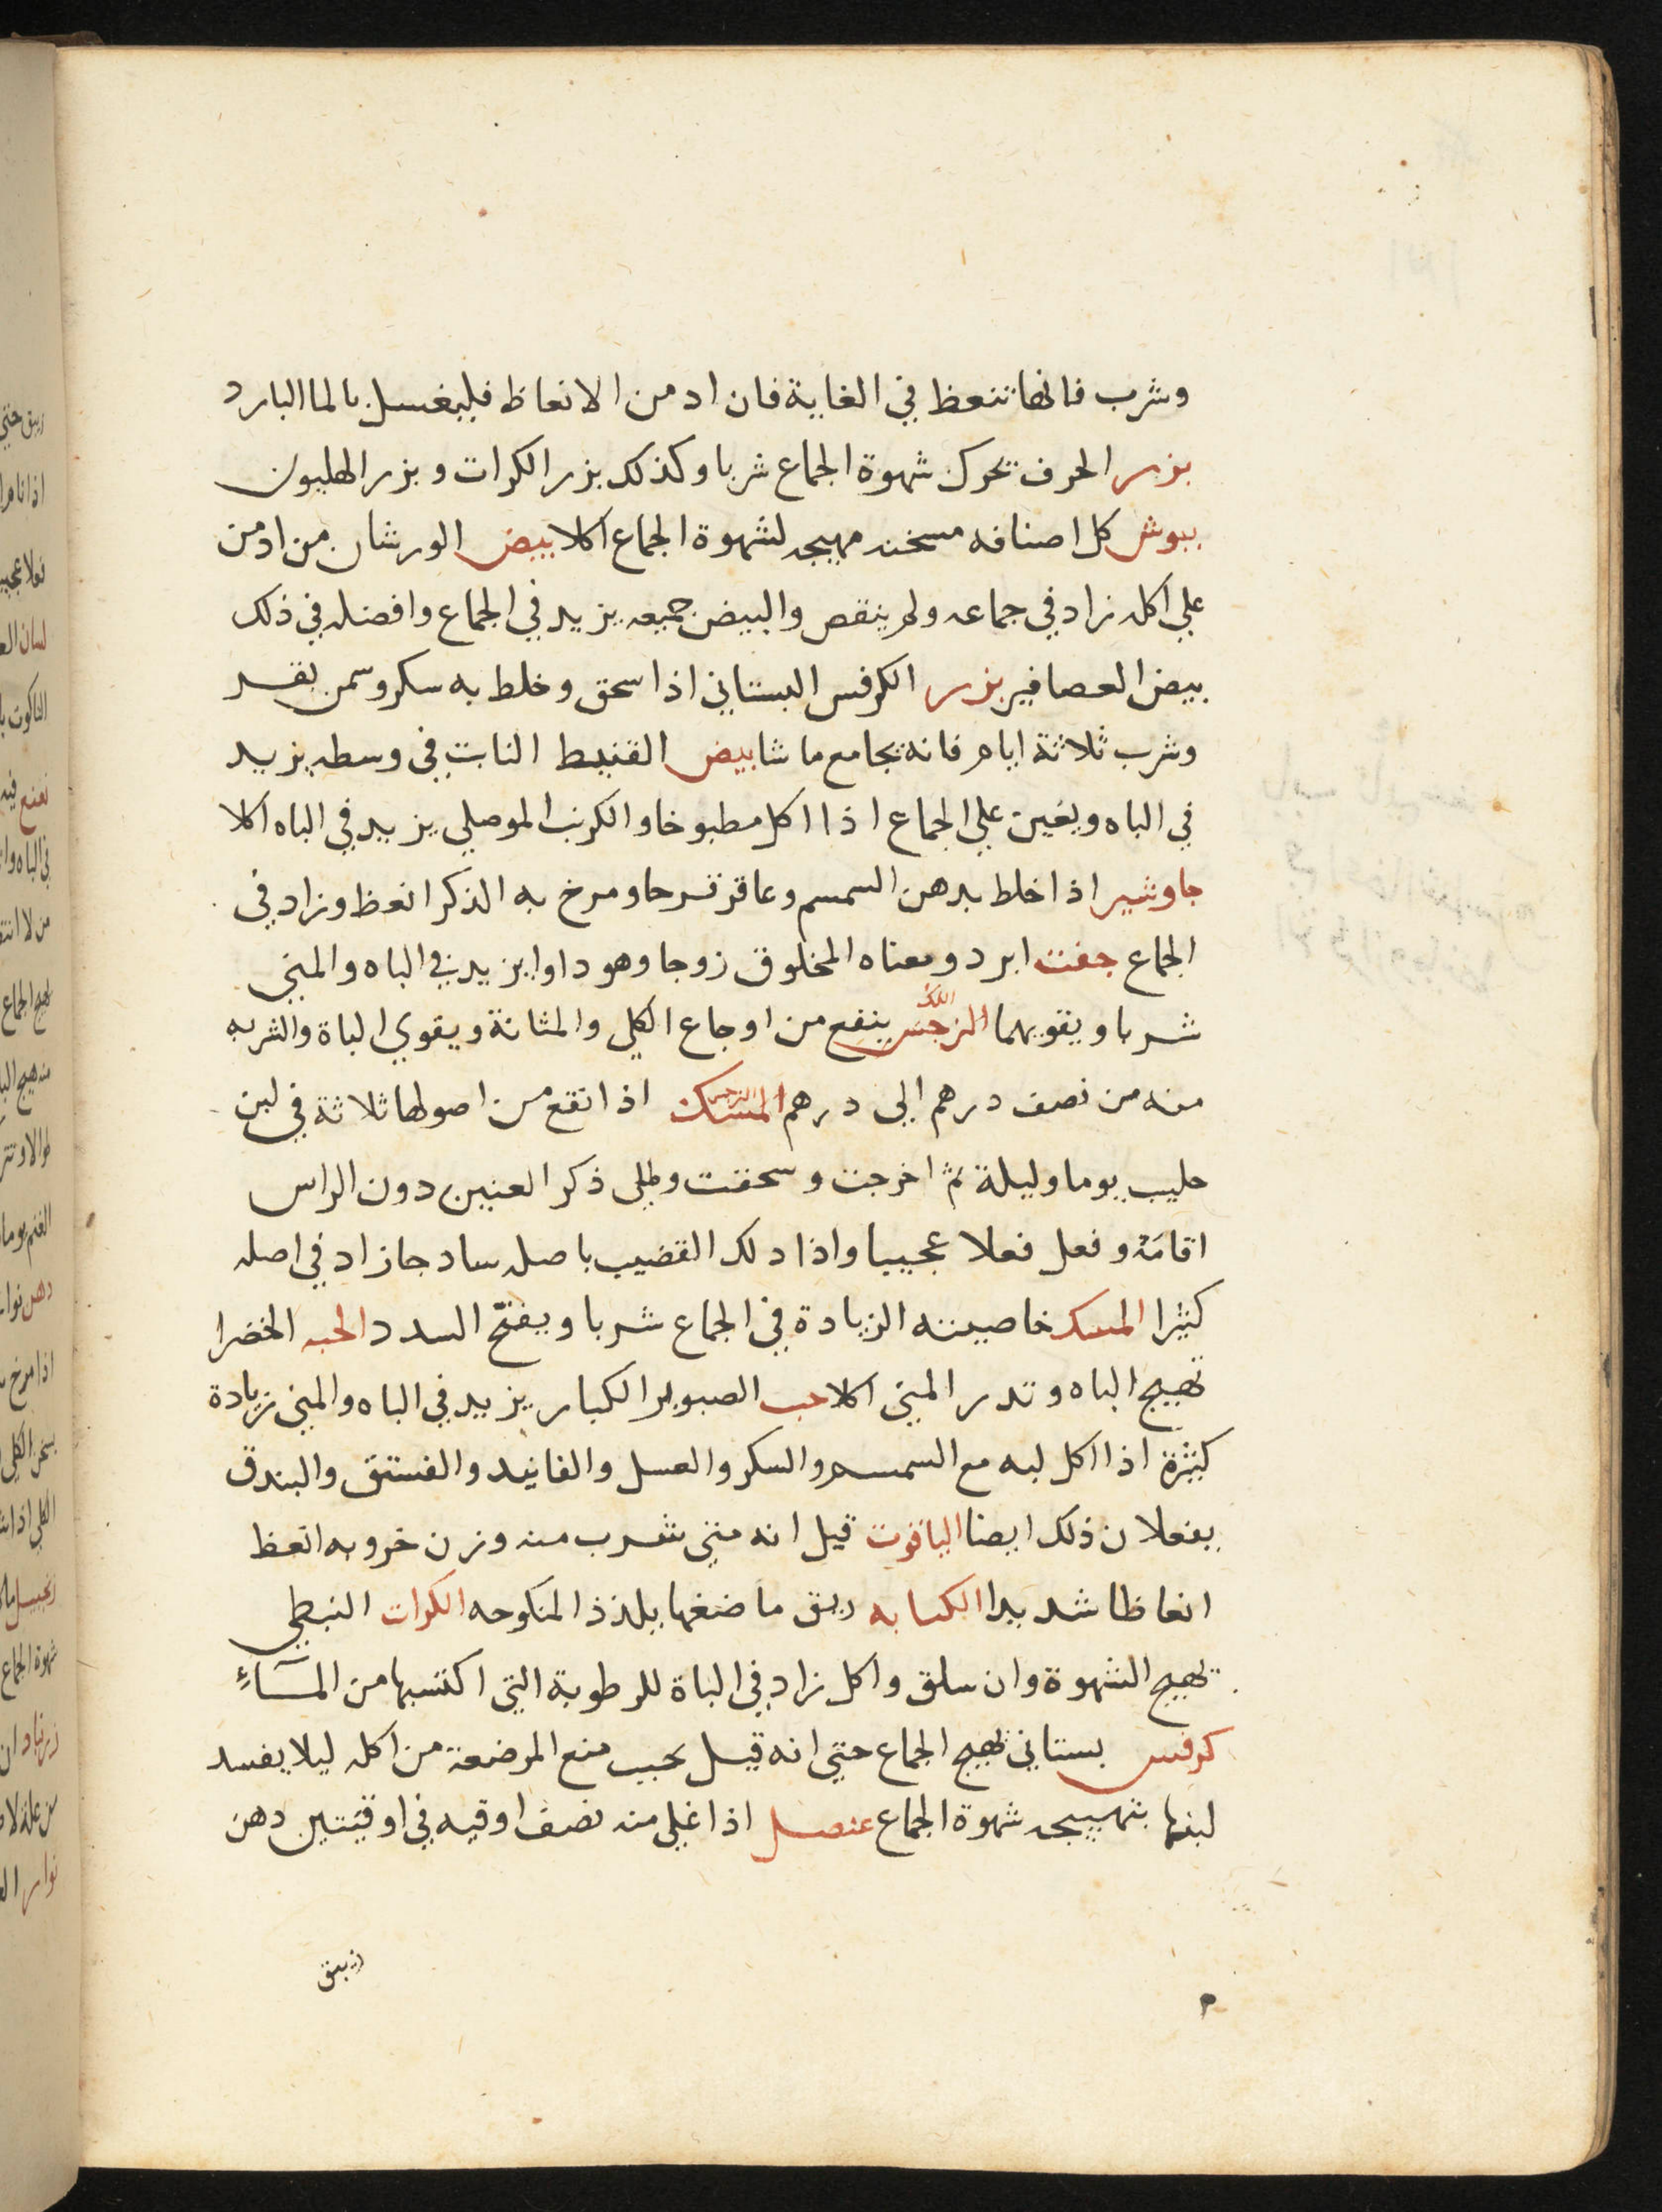 وشرب فانها تنعظ في الغاية فان ادمن الانعاظ فليغسل بالما البارد
بزر الحرف تحرك شهوة الجماع شربا وكذلك بزر الكرات وبزر الهليون
بيوش كل اصنافه مسخنه مهيجه لشهوة الجماع اكلا بيض الورشان من ادمن
علي اكله زاد في جماعه ولم ينقص والبيض جميعه يزيد في الجماع وافضله في ذلك
بيض العصافير بزر الكرفس البستاني اذا سحق وخلط به سكر وسمن بقر
وشرب ثلاثة ايام فانه يجامع ما شا بيض القنبيط النابت في وسطه يزيد
في الباه ويعين علي الجماع اذا اكل مطبوخا والكرنب الموصلي يزيد في الباه اكلا
جاوشير اذا خلط بدهن السمسم وعاقر قرحا ومرخ به الذكر انعظ وزاد في
الجماع جفت ابرد ومعناه المخلوق زوجا وهو دوا يزيد في الباه والمني
شربا ويقويهما النرجس اللك ينفع من اوجاع الكلي والمثانة ويقوي الباة والشربه
منه من نصف درهم الي درهم المسك النرجس اذا نقع من اصولها ثلاثة في لبن
حليب يوما وليلة ثم اخرجت وسحقت وطلي ذكر العنين دون الراس
اقامته وفعل فعلا عجيبا واذا دلك القضيب باصله سادجا زاد في اصله
كثيرا المسك خاصيته الزيادة في الجماع شربا ويفتح السدد الحبه الخضرا
تهيج الباه وتدر المني اكلا حب الصنوبر الكبار يزيد في الباه والمني زيادة
كثيرة اذا اكل لبه مع السمسم والسكر والعسل والفانيد والفستق والبندق
يفعلان ذلك ايضا الياقوت قيل انه متي شرب منه وزن خروبه انعظ
انعاظا شديدا الكبابه ريق ماضغها يلذذ المنكوحه الكرات النبطي
تهيج الشهوة وان سلق واكل زاد في الباة للرطوبة التي اكتسبها من المآء
كرفس بستاني تهيج الجماع حتي انه قيل يجب منع المرضعة من اكله ليلا يفسد
لبنها بتهييجه شهوة الجماع عنصل اذا غلي منه نصف اوقيه في اوقيتين دهن
زيبق